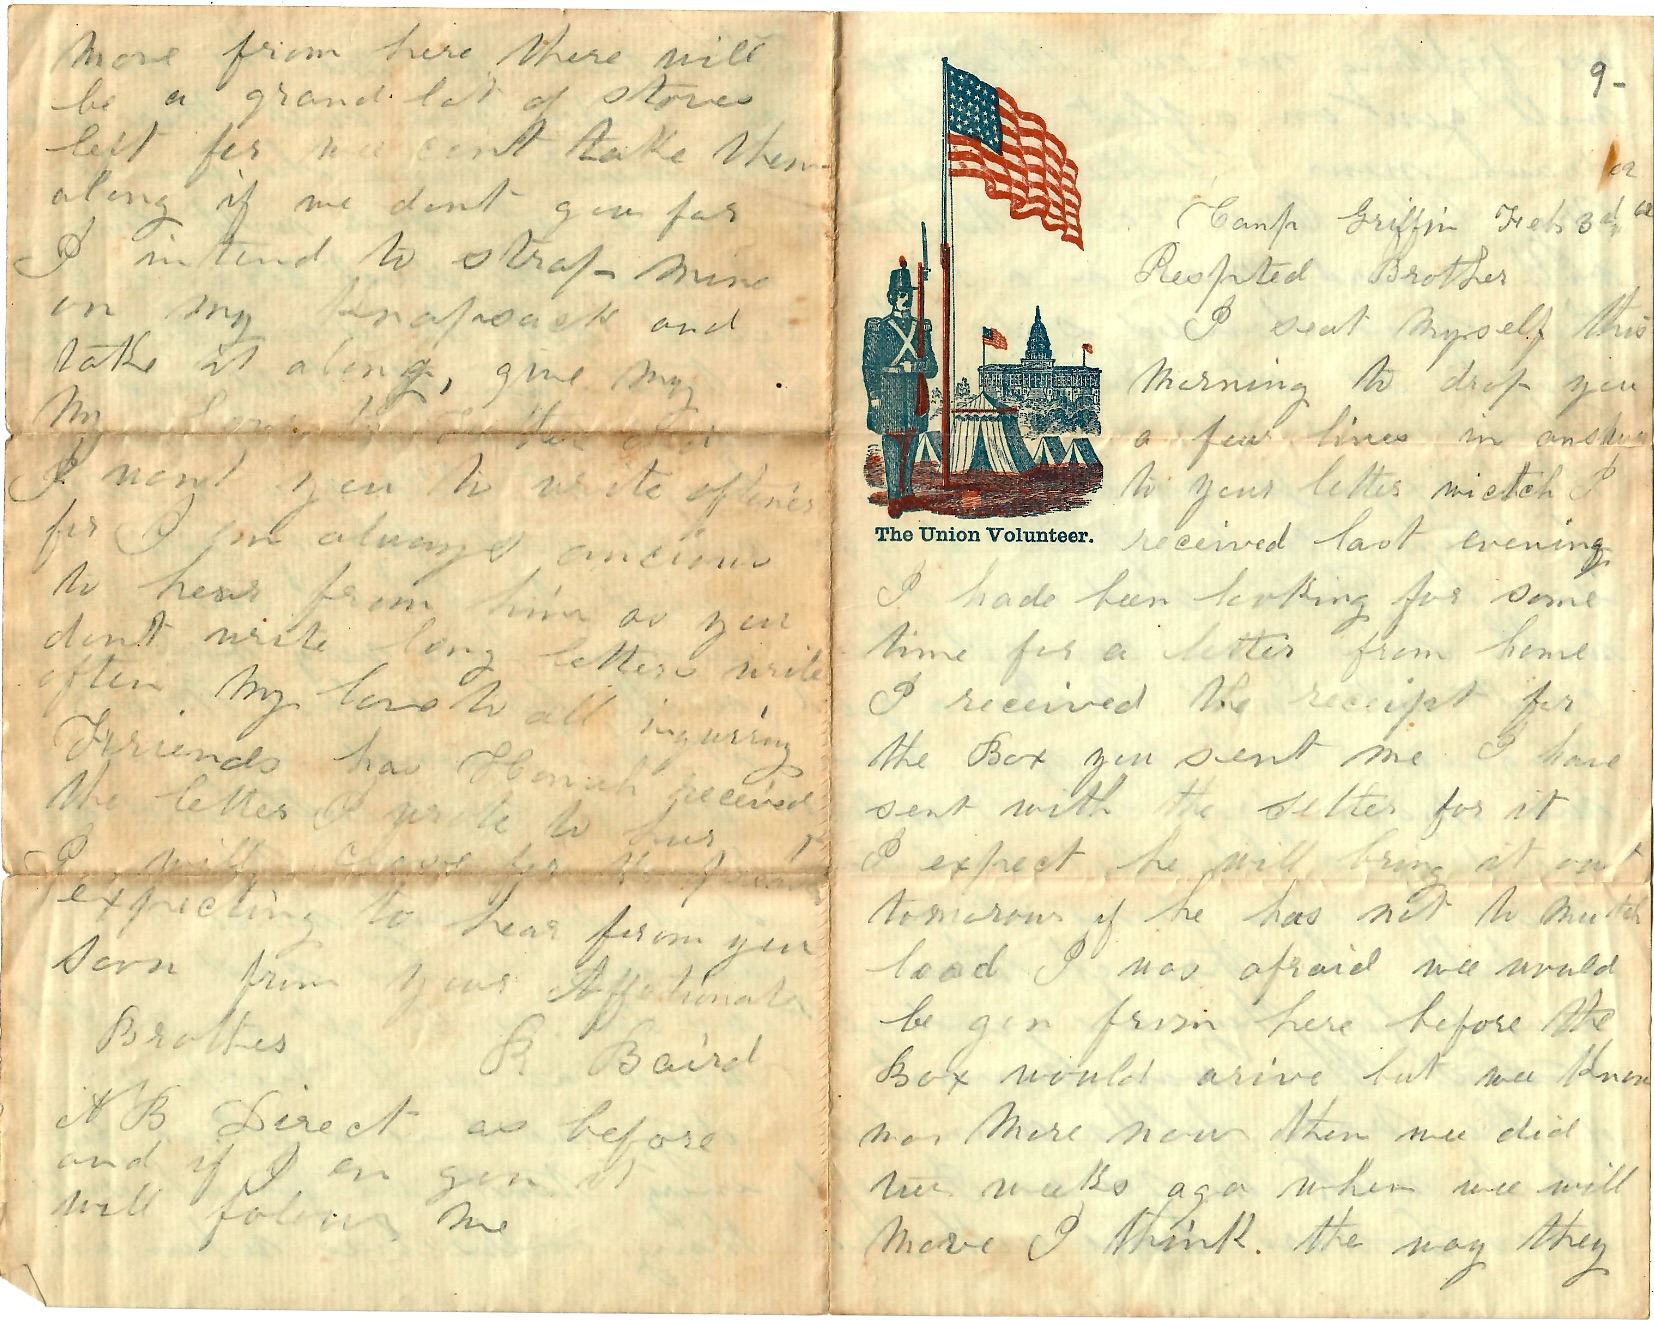 9-
Camp Griffin Feb 3d
Respted Brother
I seat myself this
morning to drop you
a few lines in answer
to your letter wictch I
received last evening
I hade been looking for some
time for a letter from home
I received the receipt for
the Box you sent me I have
sent with the setler for it
I expect he will bring it out
tomorow if he has not to mutch
load I was afraid wee would
be gon from here before the
Box would arive but wee know
no more now then wee did
two weeks ago when wee will
move I think. the way they
The Union Volunteer.
move from here there will
be a grand lot of stoves
left for wee cant take them
along if we dont gow far
I intend to strap mine
on my knapsack and
take it along, give my
my love to
I want you to write oftener
for I am always ancious
to hear from him as you
dont write long letters write
often My love to all inquiring
Friends has Hanah received
the letter I wrote to her
I will close for the present
expecting to hear from you
soon from your Affetionate
Brother R Baird
NB Direct as before
and if I am gon it
will folow me